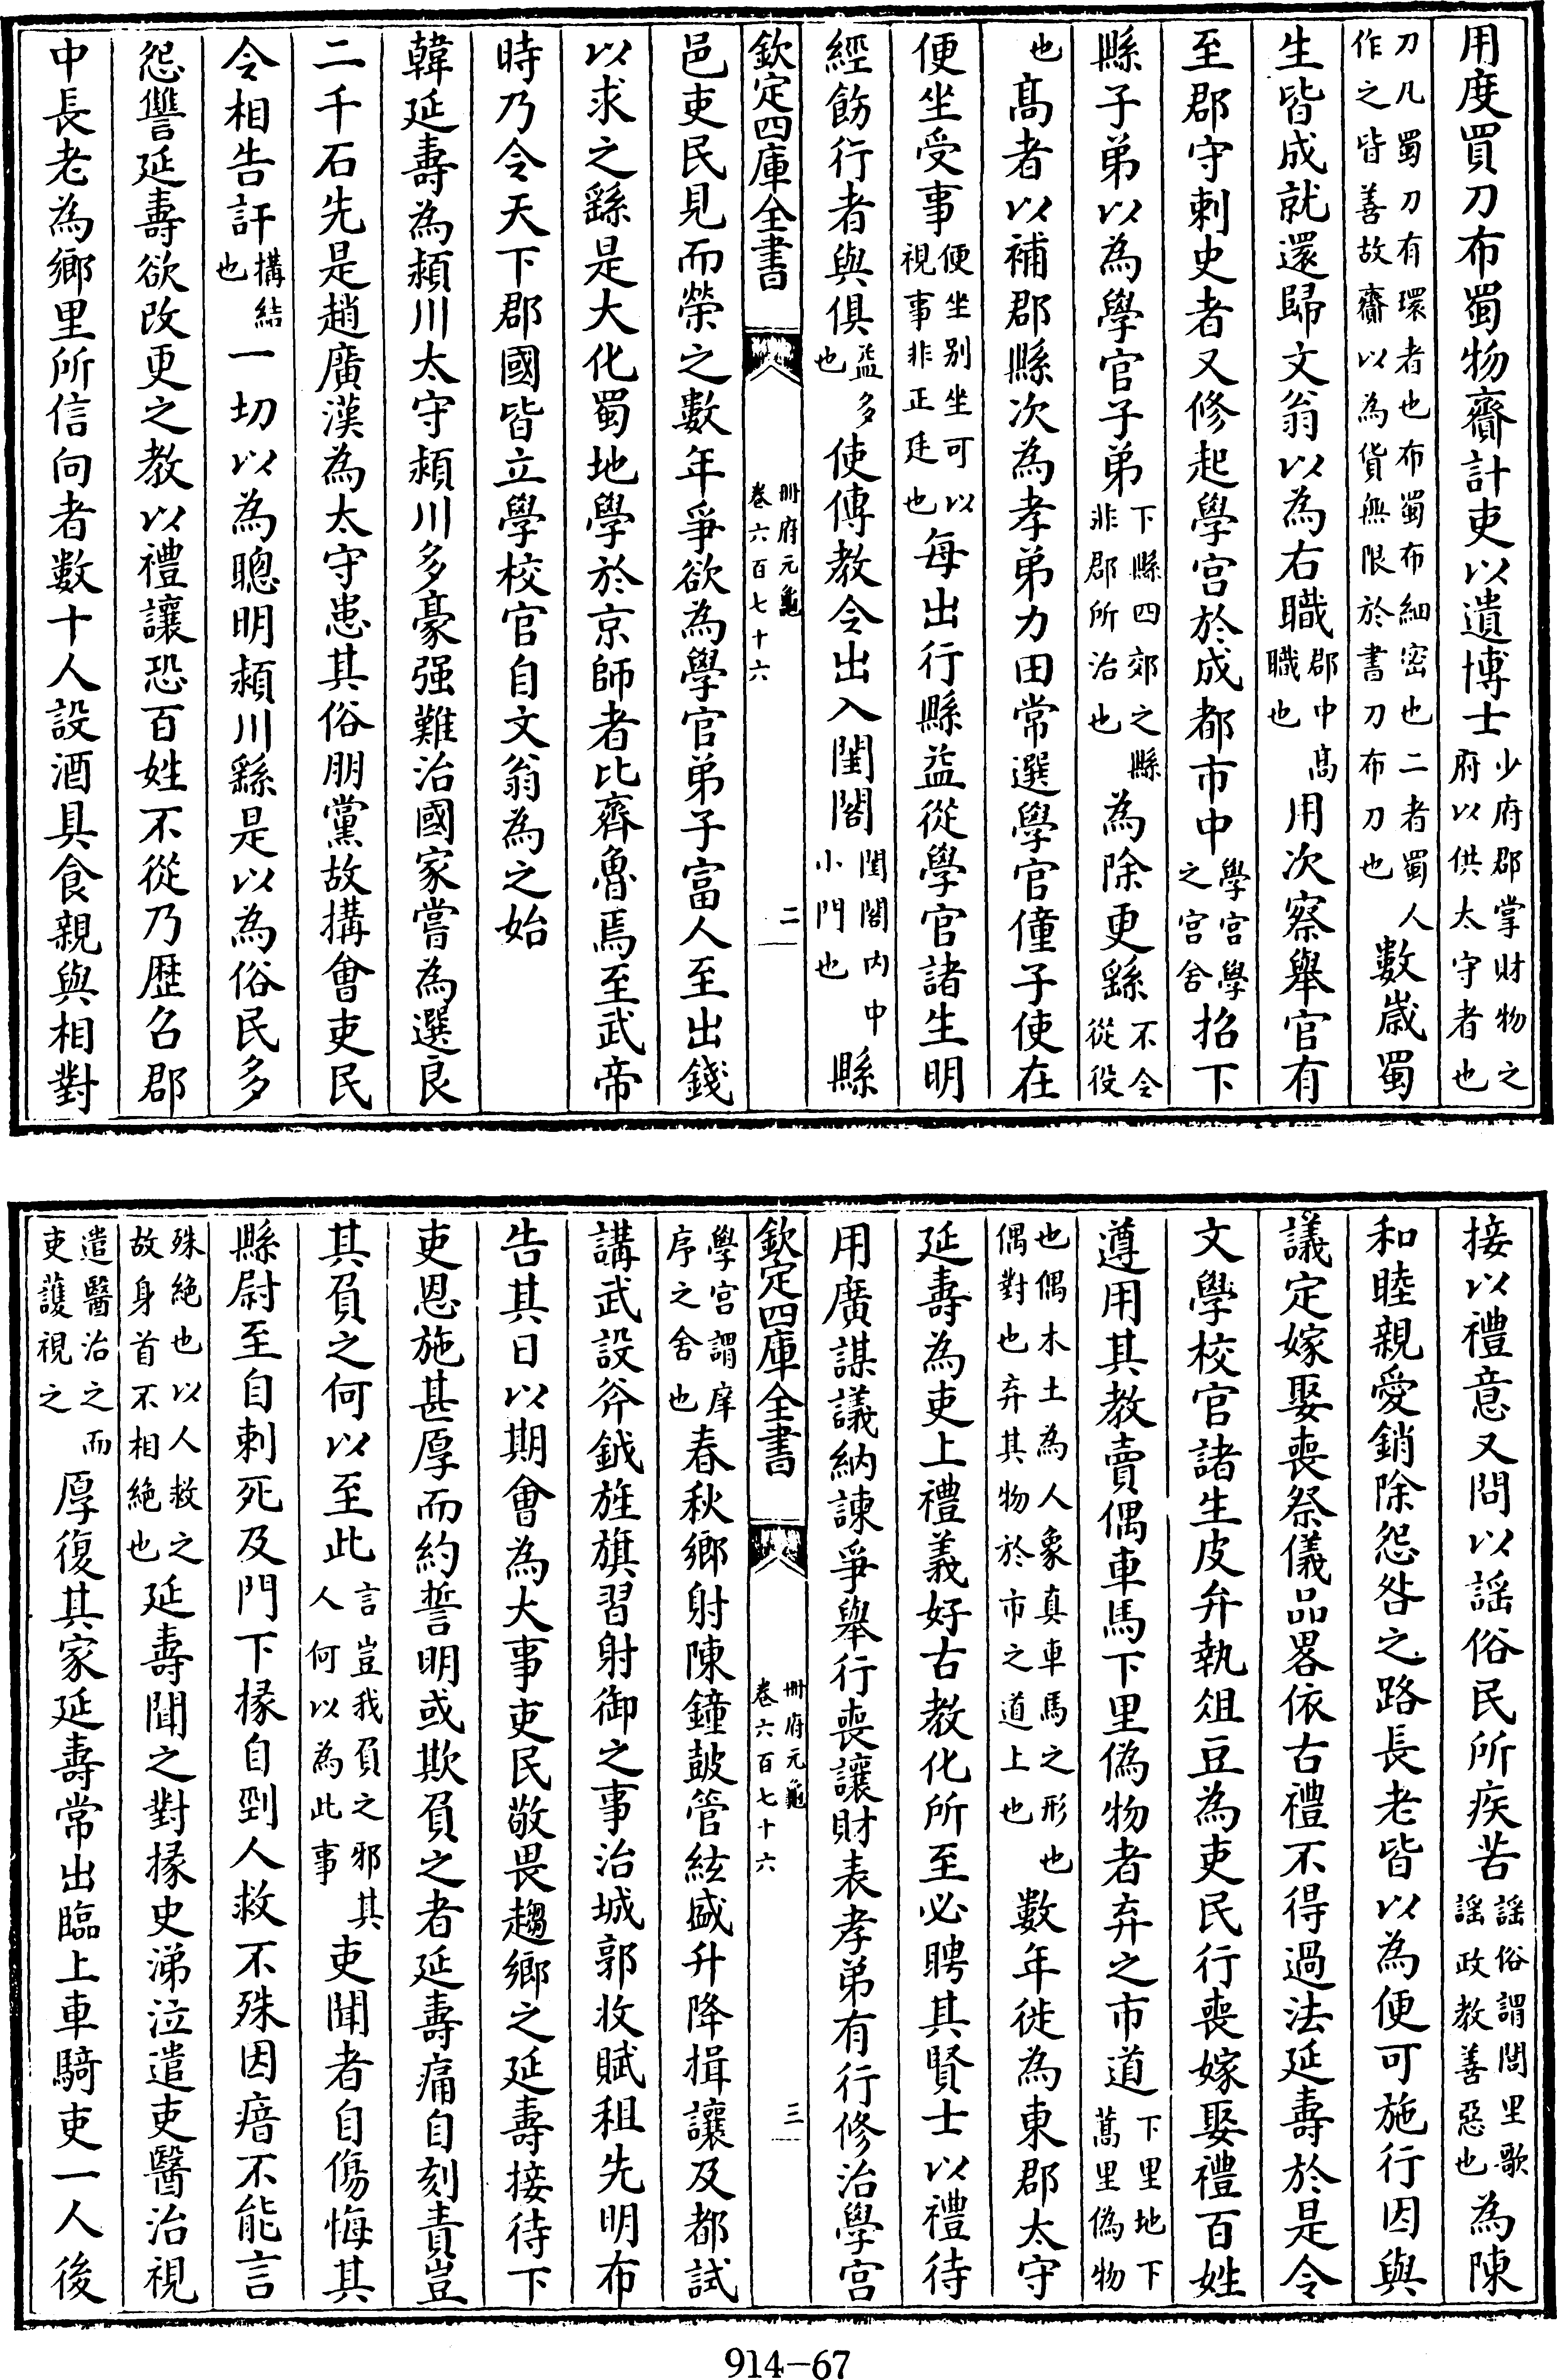 用度買刀布蜀物齎計吏以遺博士少府郡掌財物之府以供太守者也
刀凡蜀刀有環者也布蜀布細密也二者蜀人作之皆善故齎以為貨無限於書刀布刀也數嵗蜀
生皆成就還歸文翁以為右職郡中高職也用次察舉官有
至郡守刺史者又修起學宫於成都市中學宫學之宫舍招下
縣子弟以為學官子弟下縣四郊之縣非郡所治也為除更繇不令從役
也髙者以補郡縣次為孝弟力田常選學官僮子使在
便坐受事便坐别坐可以視事非正廷也每出行縣益從學官諸生明
經飭行者與俱益多也使傳教令出入閨閤閨閤内中小門也縣
欽定四庫全書
冊府元龜
卷六百七十六
二
邑吏民見而榮之數年爭欲為學官弟子富人至出錢
以求之繇是大化蜀地學於京師者比齊魯焉至武帝
時乃令天下郡國皆立學校官自文翁為之始
韓延壽為潁川太守潁川多豪强難治國家嘗為選良
二千石先是趙廣漢為太守患其俗朋黨故搆會吏民
令相告訐搆結也一切以為聰明潁川繇是以為俗民多
怨讐延壽欲改更之教以禮讓恐百姓不從乃歴召郡
中長老為鄉里所信向者數十人設酒具食親與相對
接以禮意又問以謡俗民所疾苦謡俗謂閭里歌謡政教善惡也為陳
和睦親愛銷除怨咎之路長老皆以為便可施行因與
議定嫁娶喪祭儀品畧依古禮不得過法延壽於是令
文學校官諸生皮弁執俎豆為吏民行喪嫁娶禮百姓
遵用其教賣偶車馬下里偽物者弃之市道下里地下蒿里偽物
也偶木土為人象真車馬之形也偶對也弃其物於市之道上也數年徙為東郡太守
延壽為吏上禮義好古教化所至必聘其賢士以禮待
用廣謀議納諫爭舉行喪讓財表孝弟有行修治學宫
欽定四庫全書
冊府元龜
卷六百七十六
三
學宫謂庠序之舍也春秋鄉射陳鐘皷管絃盛升降揖讓及都試
講武設斧鉞旌旗習射御之事治城郭收賦租先明布
告其日以期會為大事吏民敬畏趨鄉之延壽接待下
吏恩施甚厚而約誓明或欺負之者延壽痛自刻責豈
其負之何以至此言豈我負之邪其人何以為此事吏聞者自傷悔其
縣尉至自刺死及門下掾自剄人救不殊因瘖不能言
殊絶也以人救之故身首不相絶也延壽聞之對掾史涕泣遣吏醫治視
遣醫治之而吏護視之厚復其家延壽常出臨上車騎吏一人後
914-67